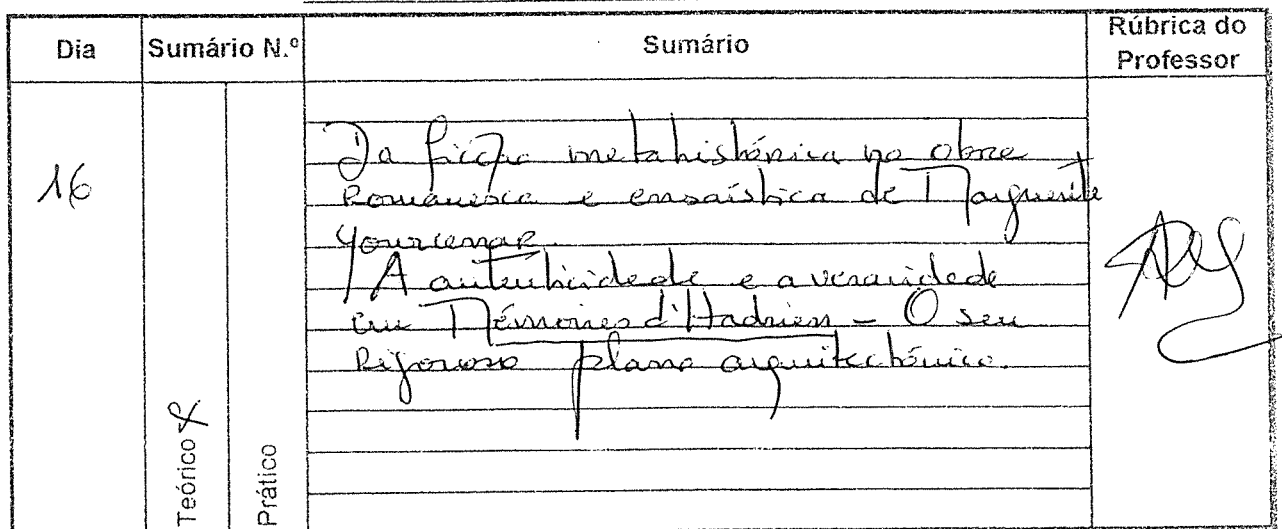 Dia Sumário N.º Sumário Rúbrica do Professor
16
Da ficção metahistórica na obra
Romanesca e ensaística de Marguerite
Yourcenar.
A autenticidade e a veracidade
em Mémoires d'Hadrien - O seu
Rigoroso plano arquitectónico.
Teórico
Prático